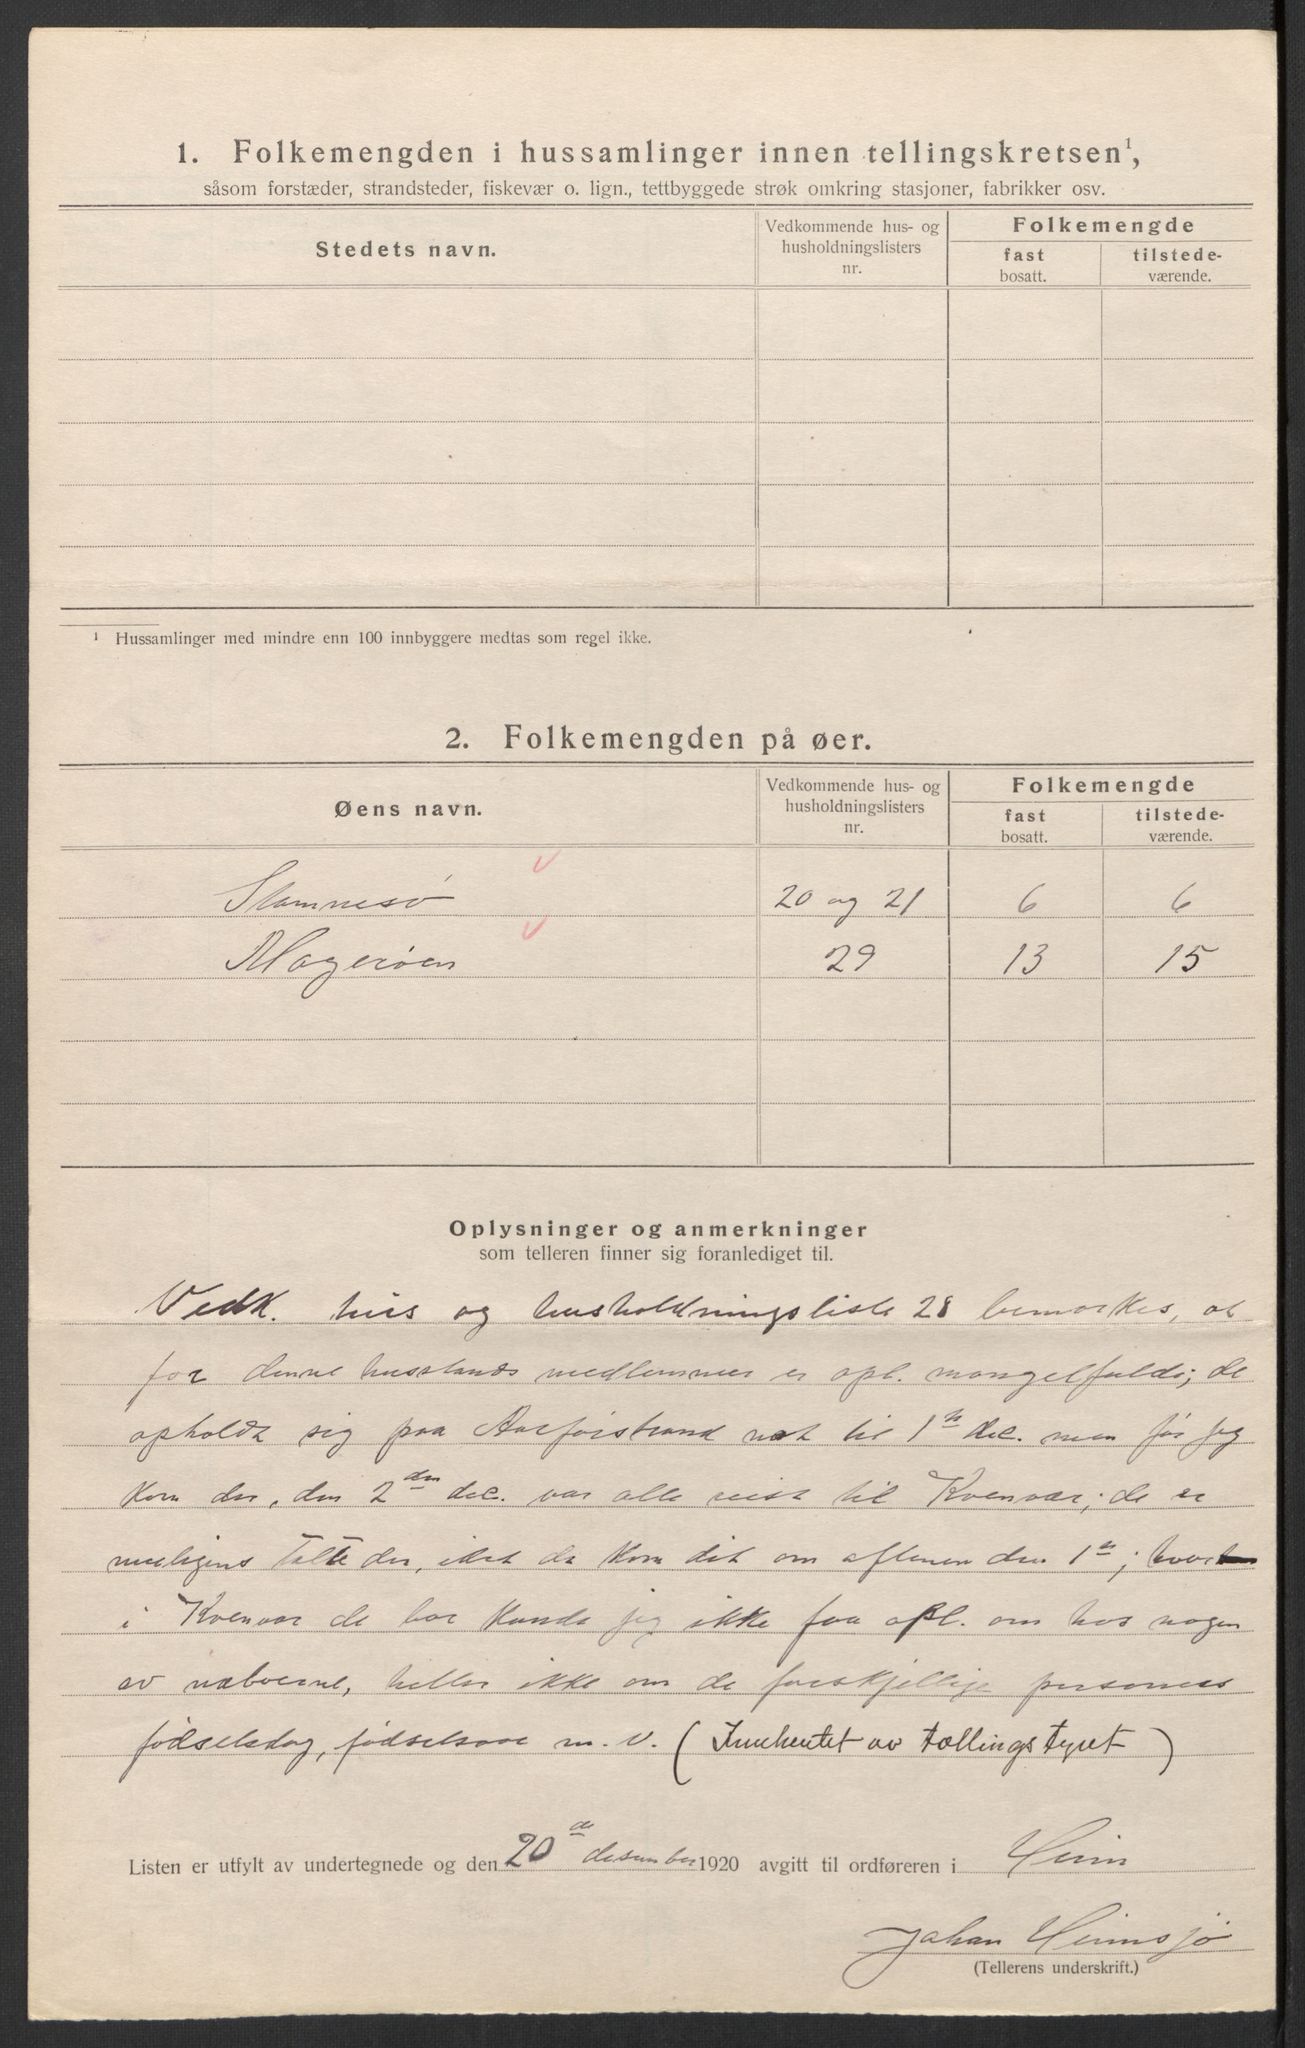 1. Folkemengden i hussamlinger innen tellingskretsen¹,
såsom forstæder, strandsteder, fiskevær o. lign., tettbyggede strøk omkring stasjoner, fabrikker osv.
Stedets navn.
Vedkommende hus- og
husholdningslisters
nr.
Folkemengde
fast
bosatt.
tilstede-
værende.
¹ Hussamlinger med mindre enn 100 innbyggere medtas som regel ikke.
2. Folkemengden på øer.
Øens navn.
Vedkommende hus- og
husholdningslisters
nr.
Folkemengde
fast
bosatt.
tilstede-
værende.
Stamnesø 20 og 21 6 6
Magerøen 29 13 15
Oplysninger og anmerkninger
som telleren finner sig foranlediget til.
Vedk. hus og husholdningsliste 28 bemerkes, at
for denne husstands medlemmer er opl. mangelfulde; de
opholdt sig paa nat til 1ste dec. men før jeg
kom der, den 2den dec. var alle reist til Kvenvær; de er
muligens talte der, idet de kom dit om aftenen den 1ste; hvor
i Kvenvær de bor kunde jeg ikke faa opl. om hos nogen
av naboerne, heller ikke om de forskjellige personers
fødselsdag, fødselsaar m. v. (Innhentet av tællingstyret)
Listen er utfylt av undertegnede og den 20de desember 1920 avgitt til ordføreren i Heim
Johan Heimsjø
(Tellerens underskrift.)